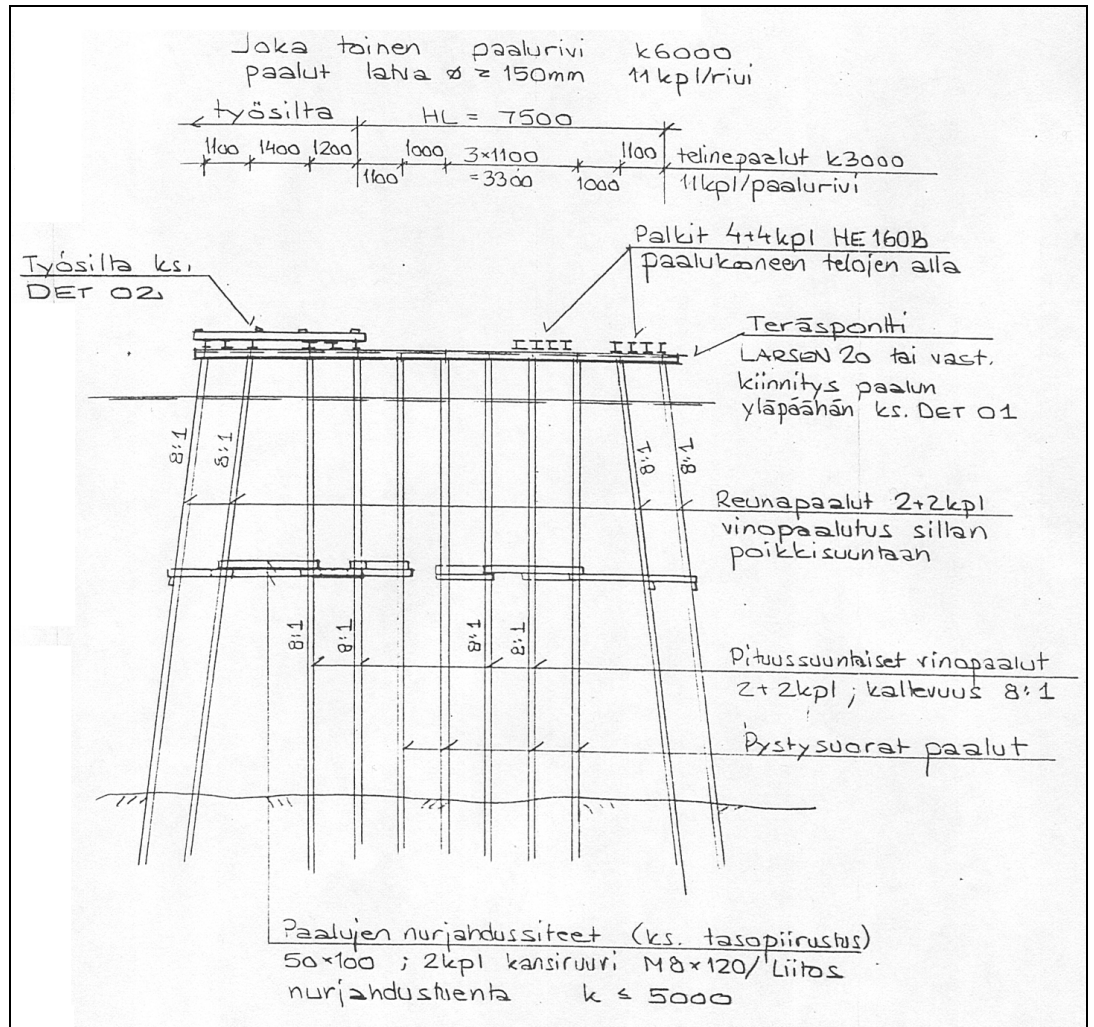 Joka toinen paalurivi k6000
paalut latva ø ≥ 150mm 11kpl/rivi
työsilta HL = 7500
1100 1400 1200 1000 3×1100 1100 telinepaalut k3000
1100 =3300 1000 11kpl/paalurivi
Palkit 4+4kpl HE 160B
paalukoneen telojen alla
Työsilta ks.
DET 02
Teräspontti
LARSEN 20 tai vast.
kiinnitys paalun
yläpäähän ks. DET 01
8:1 8:1 8:1 8:1
Reunapaalut 2+2kpl
vinopaalutus sillan
poikkisuuntaan
8:1 8:1 8:1 8:1
Pituussuuntaiset vinopaalut
2+2kpl ; kaltevuus 8:1
Pystysuorat paalut
Paalujen nurjahdussiteet (ks. tasopiirustus)
50×100 ; 2kpl kansiruuvi M8×120/Liitos
nurjahdustuenta k ≤ 5000